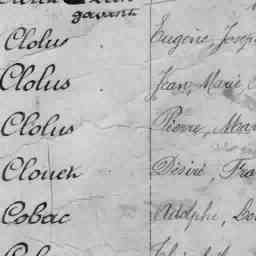 gavent
Clolus Eugène, Josep
Clolus Jean, Marie
Clolus Pierre, Mari
Clouet Désiré, Fra
Cobac Adolphe,